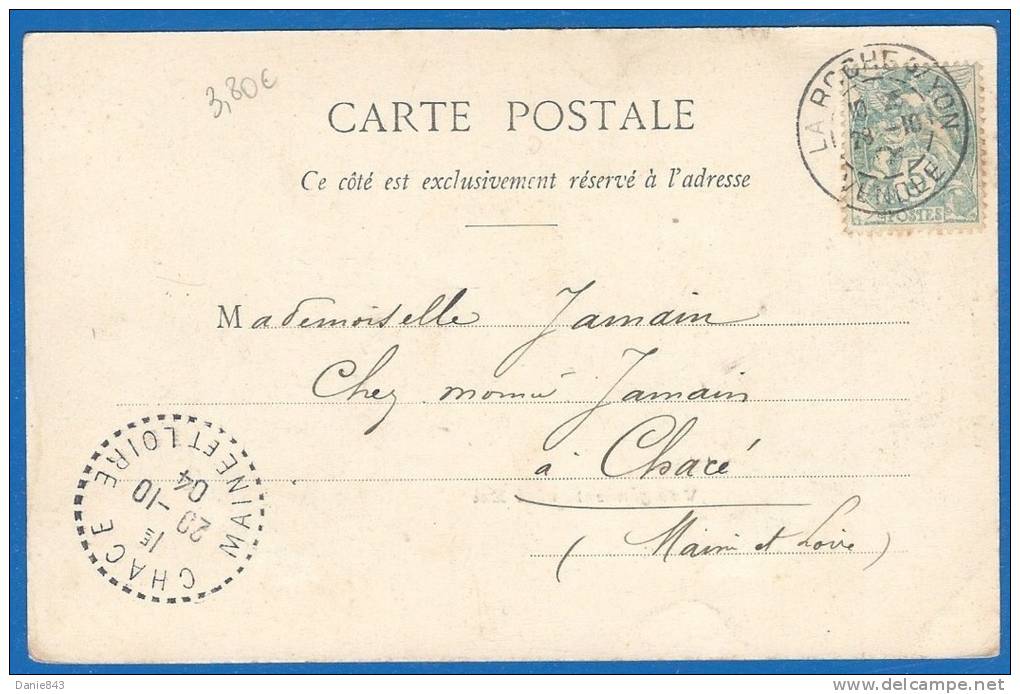 3,80€
CARTE POSTALE
Ce côté est exclusivement réservé à l'adresse
LA ROCHE S/ YON
VENDÉE
5
POSTES
Mademoiselle Jamain
Chez Jamain
à Chacé
(Maine et Loire)
CHACE MAINE ET LOIRE
1E
29 -10
04
Danie843
www.delcampe.net